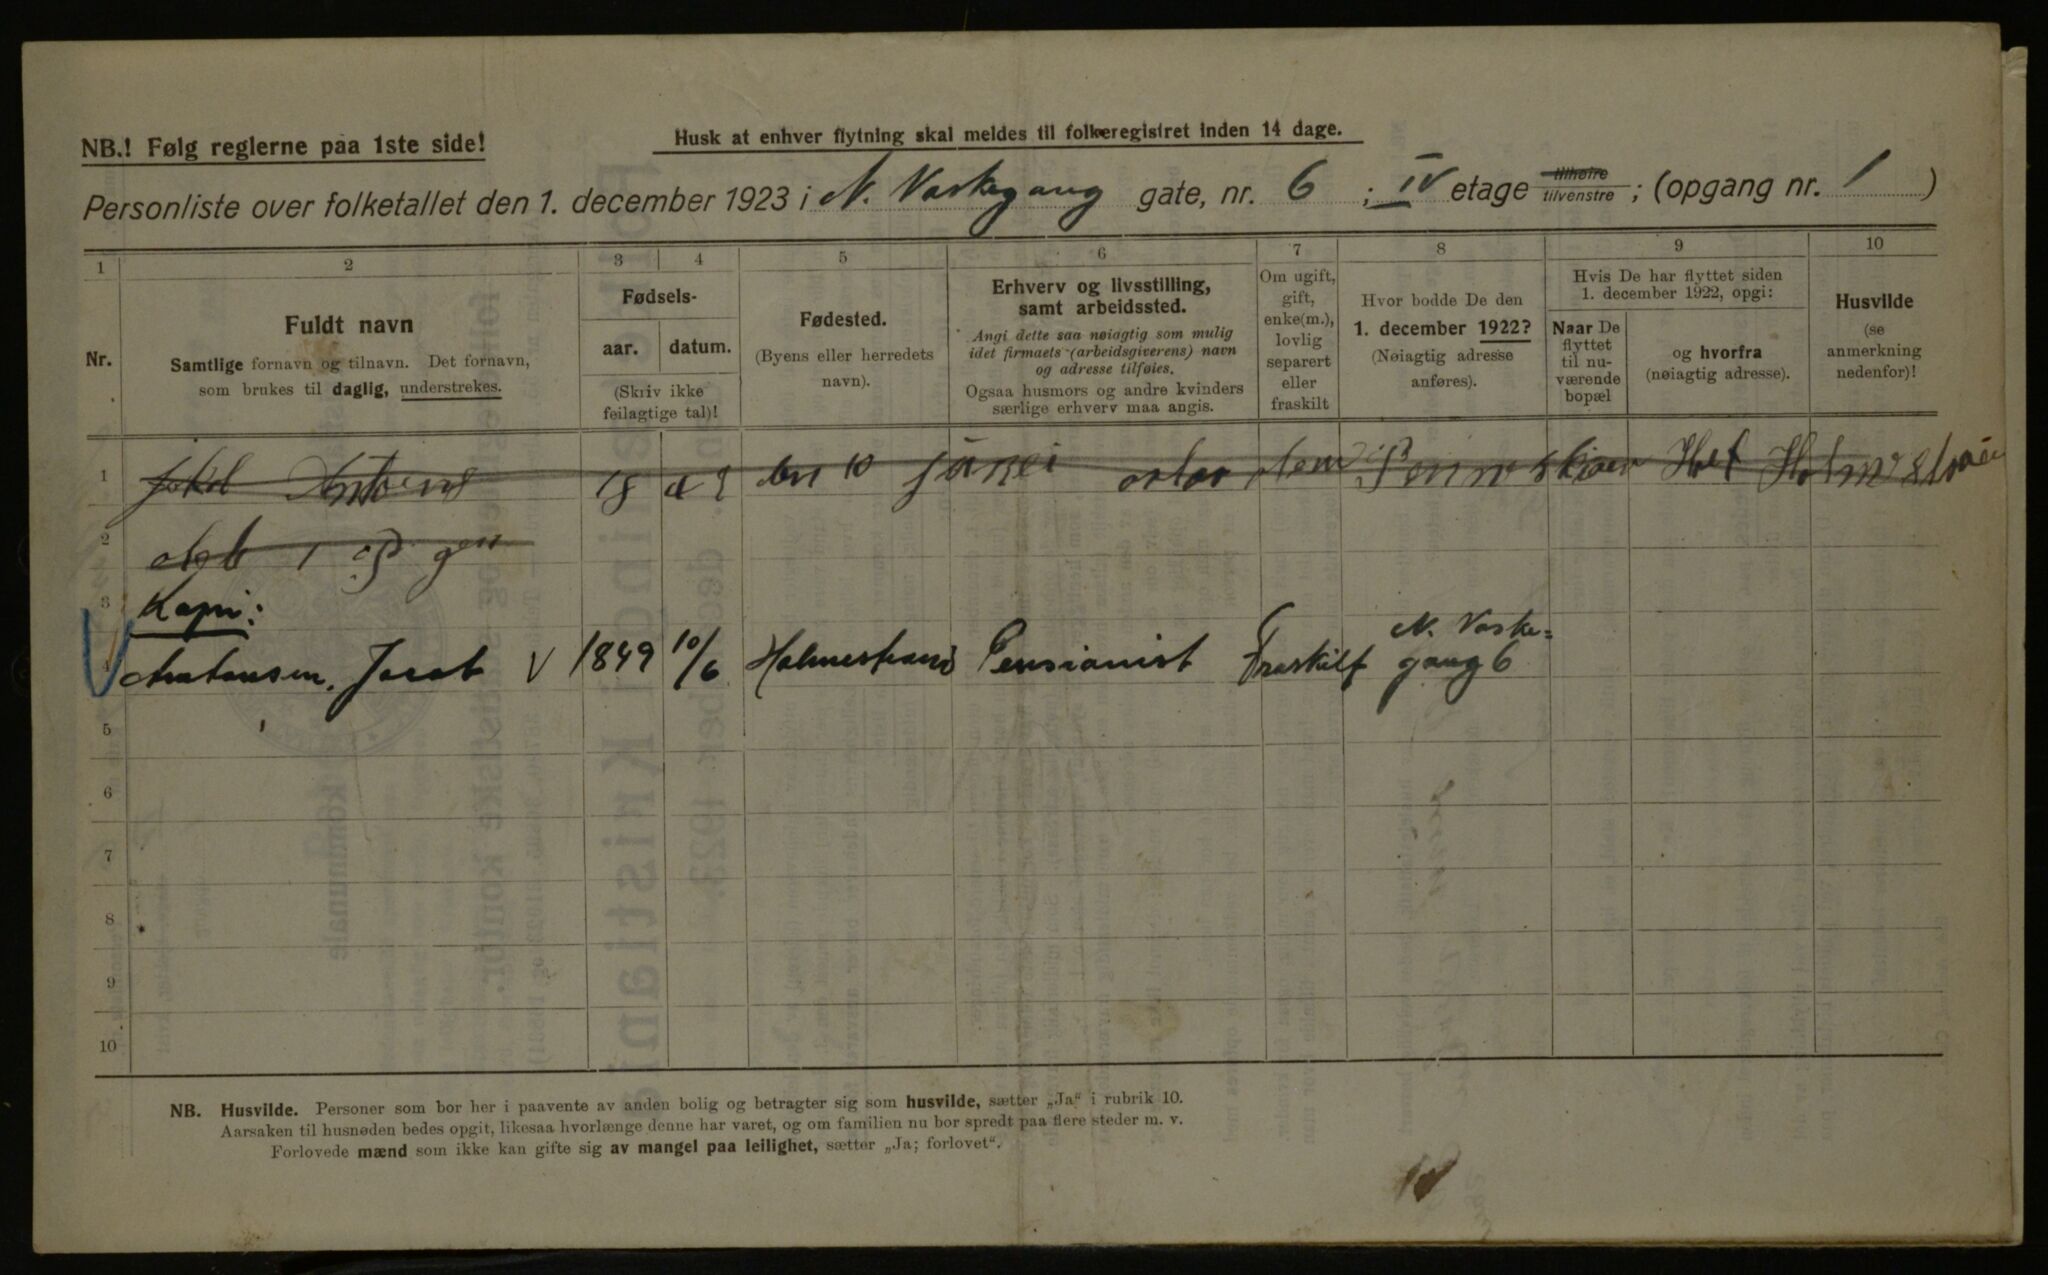 NB.! Følg reglerne paa 1ste side!
Husk at enhver flytning skal meldes til folkeregistret inden 14 dage.
Personliste over folketallet den 1. december 1923 i N. Vaskegang gate, nr. 6 ; IV etage tilhøire tilvenstre ; (opgang nr. 1 )
1 2 3 4 5 6 7 8 9 10
Nr.
Fuldt navn
Samtlige fornavn og tilnavn. Det fornavn,
som brukes til daglig, understrekes.
Fødsels-
aar. datum.
(Skriv ikke
feilagtige tal)!
Fødested.
(Byens eller herredets
navn).
Erhverv og livsstilling,
samt arbeidssted.
Angi dette saa nøiagtig som mulig
idet firmaets (arbeidsgiverens) navn
og adresse tilføies.
Ogsaa husmors og andre kvinders
særlige erhverv maa angis.
Om ugift,
gift,
enke(m.),
lovlig
separert
eller
fraskilt
Hvor bodde De den
1. december 1922?
(Nøiagtig adresse
anføres).
Hvis De har flyttet siden
1. december 1922, opgi:
Naar De
flyttet
til nu-
værende
bopæl
og hvorfra
(nøiagtig adresse).
Husvilde
(se
anmerkning
nedenfor)!
1 18 49 den 10
2
3 Kopi:
4 Jacob V 1849 10/6 Holmestrand Pensionist Fraskilt N. Vaske=
gang 6
5
6
7
8
9
10
NB. Husvilde. Personer som bor her i paavente av anden bolig og betragter sig som husvilde, sætter „Ja“ i rubrik 10.
Aarsaken til husnøden bedes opgit, likesaa hvorlænge denne har varet, og om familien nu bor spredt paa flere steder m. v.
Forlovede mænd som ikke kan gifte sig av mangel paa leilighet, sætter „Ja; forlovet“.